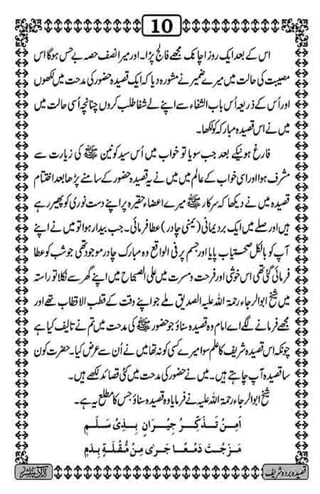 10
اس کے بعد ایک روز اچانک مجھے فالج پڑا۔ اور میرا نصف حصہ بے حس ہو گیا اس
مصیبت کی حالت میں میرے ضمیر نے مشورہ دیا کہ ایک قصیدہ حضور کی مدحت میں لکھوں
اور اُس کے ذریعہ اُس باب الشفاء سے اپنے لے شفا طلب کروں چنانچہ اسی حالت میں
میں نے اس قصیدہ مبارکہ کو لکھا۔
فارغ ہونیکے بعد جب سویا تو خواب میں اُس سید کونین ﷺ کی زیارت سے
مشرف ہوا اور اسی خواب کے عالم میں میں نے یہ قصیدہ حضور کے سامنے پڑھا بعد اختتام
قصیدہ میں نے دیکھا کہ سرکار ﷺ میرے اعضاء حقیرہ پر اپنے دست نوری کو پھیر رہے
ہیں اور صلے میں ایک بردیمانی (یمنی چادر) عطا فرمائی۔ جب بیدار ہوا تو میں نے اپنے
آپ کو بالکل صحتیاب پایا اور جسم پر فی الواقع وہ مبارک چادر موجود تھی جو شب کو عطا
فرمائی گئی تھی اس خوشی اور فرحت و مسرت میں علی الصباح میں اپنے گھر سے نکلا تو راستہ
میں شیخ ابوالرجاء رحمۃ اللہ علیہ الصدیق ملے جو اپنے وقت کے قطب الاقطاب تھے اور
مجھے فرمانے لگے اے امام وہ قصیدہ سناؤ جو حضور ﷺ کی مدحت میں تم نے تالیف کیا ہے
چونکہ اس قصیدہ شریف کا علم سوا میرے کسی کو نہ تھا میں نے اُن سے عرض کیا۔ حضرت کون
سا قصیدہ آپ چاہتے ہیں۔ میں نے حضور کی مدحت میں کئی قصائد لکھے ہیں۔
شیخ ابوالرجاء رحمۃ اللہ علیہ نے فرمایا وہ قصیدہ سناؤ جس کا مطلع یہ ہے۔
اَمِنْ تَذَكُّرِ جِيْرَانٍ بِذِيْ سَلَمٍ
مَزَجْتَ دَمْعًا جَرٰى مِنْ مُّقْلَةٍ بِدَمٍ
قصیدہ بردہ شریف